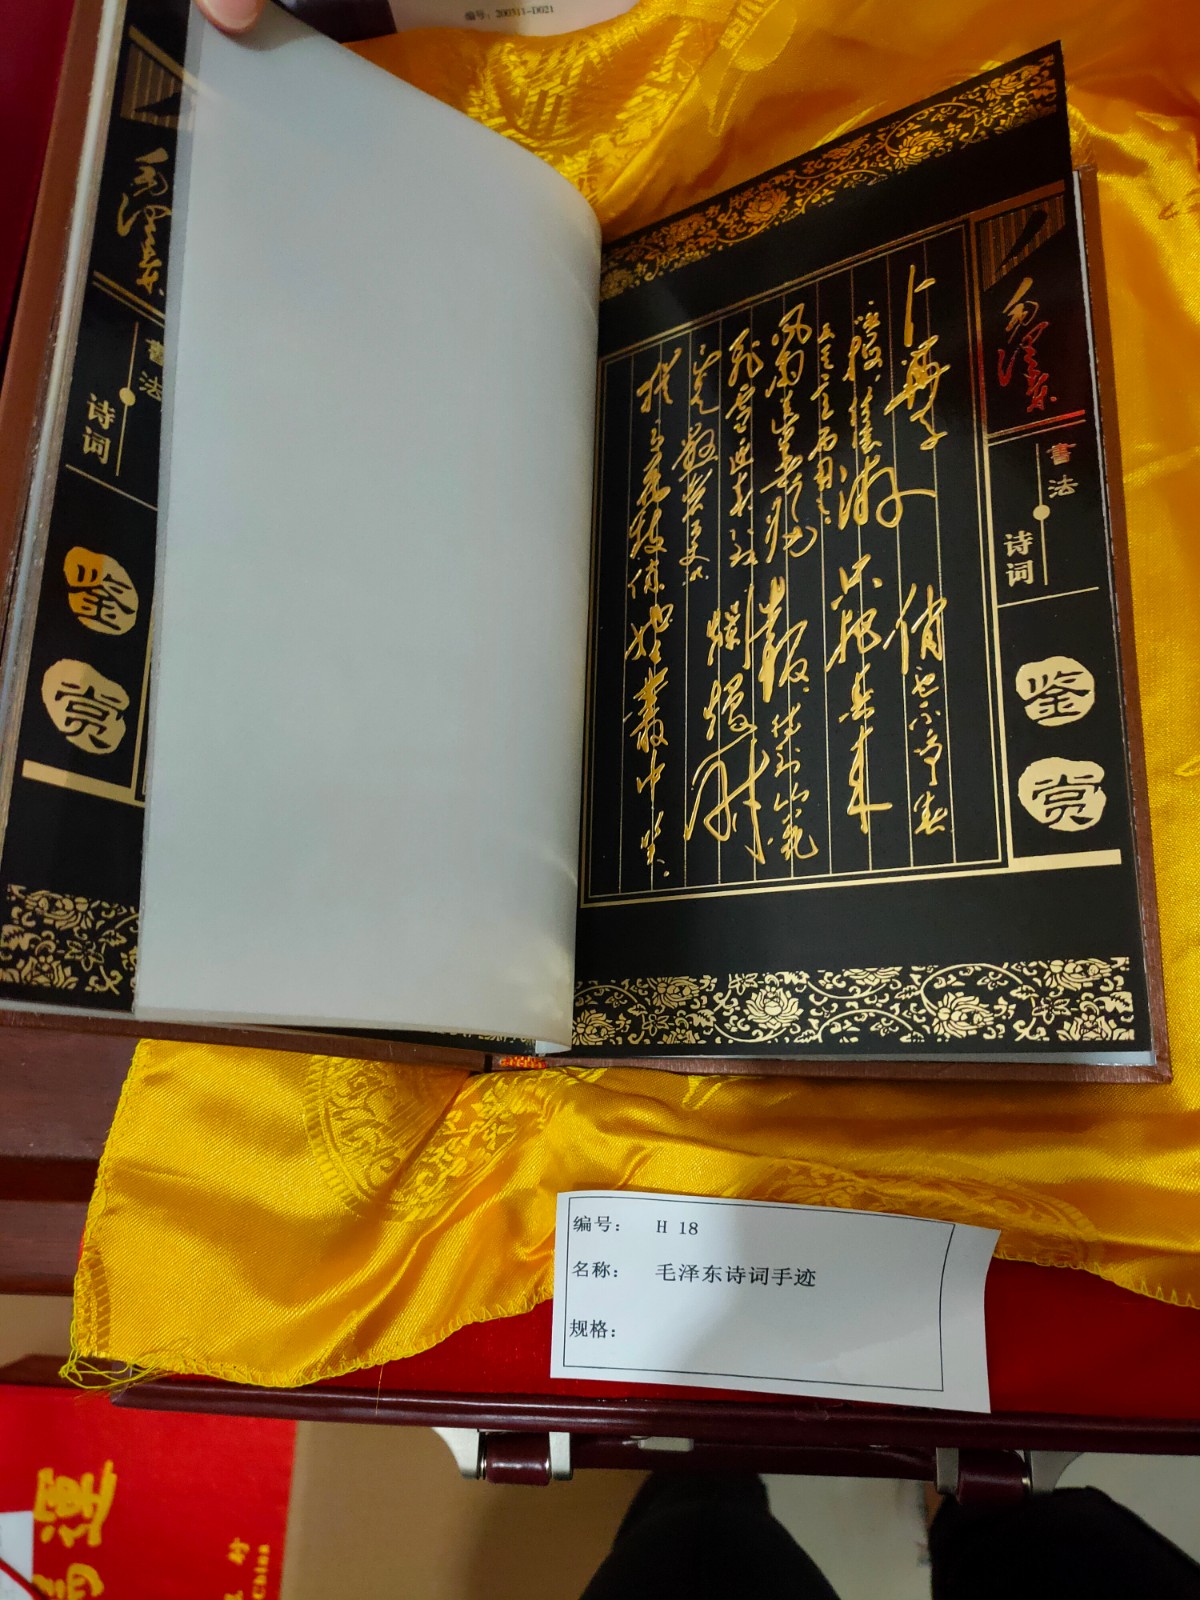 编号：200311-D021
毛泽东
書法
诗词
鉴赏
毛泽东
書法
诗词
鉴赏
卜算子
风雨送春归
飞雪迎春到
已是悬崖百丈冰
犹有花枝俏
俏也不争春
只把春来
报，待到山花
烂漫时
她在丛中笑。
编号： H 18
名称： 毛泽东诗词手迹
规格：
China